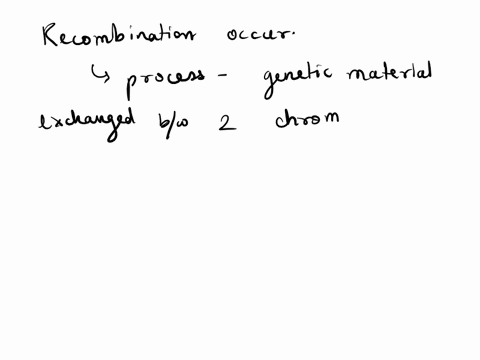 Recombination occur.
↳ process - genetic material
exchanged b/w 2 chrom